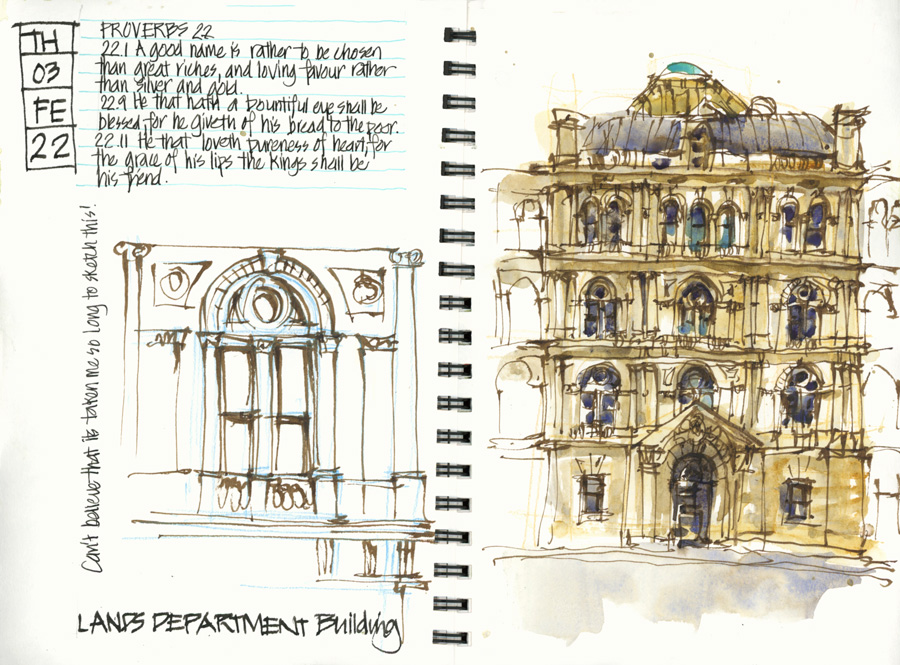 TH
03
FE
22
PROVERBS 22
22.1 A good name is rather to be chosen
than great riches, and loving favour rather
than silver and gold.
22.9 He that hath a bountiful eye shall be
blessed, for he giveth of his bread to the poor.
22.11 He that loveth pureness of heart, for
the grace of his lips the kings shall be
his friend.
Can't believe that its taken me so long to sketch this!
LANDS DEPARTMENT Building